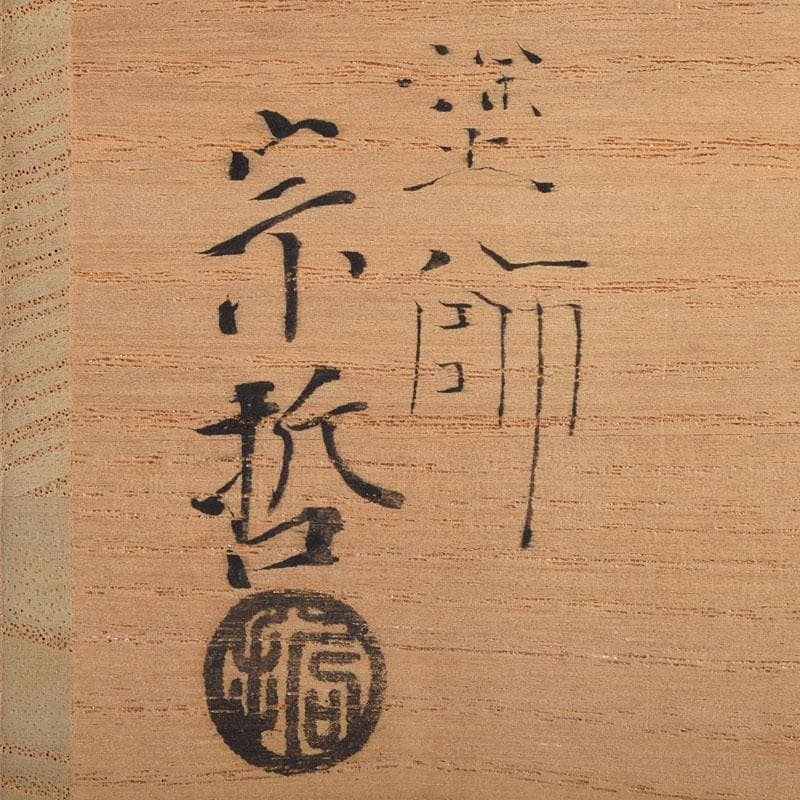 塗師
宗哲
哲